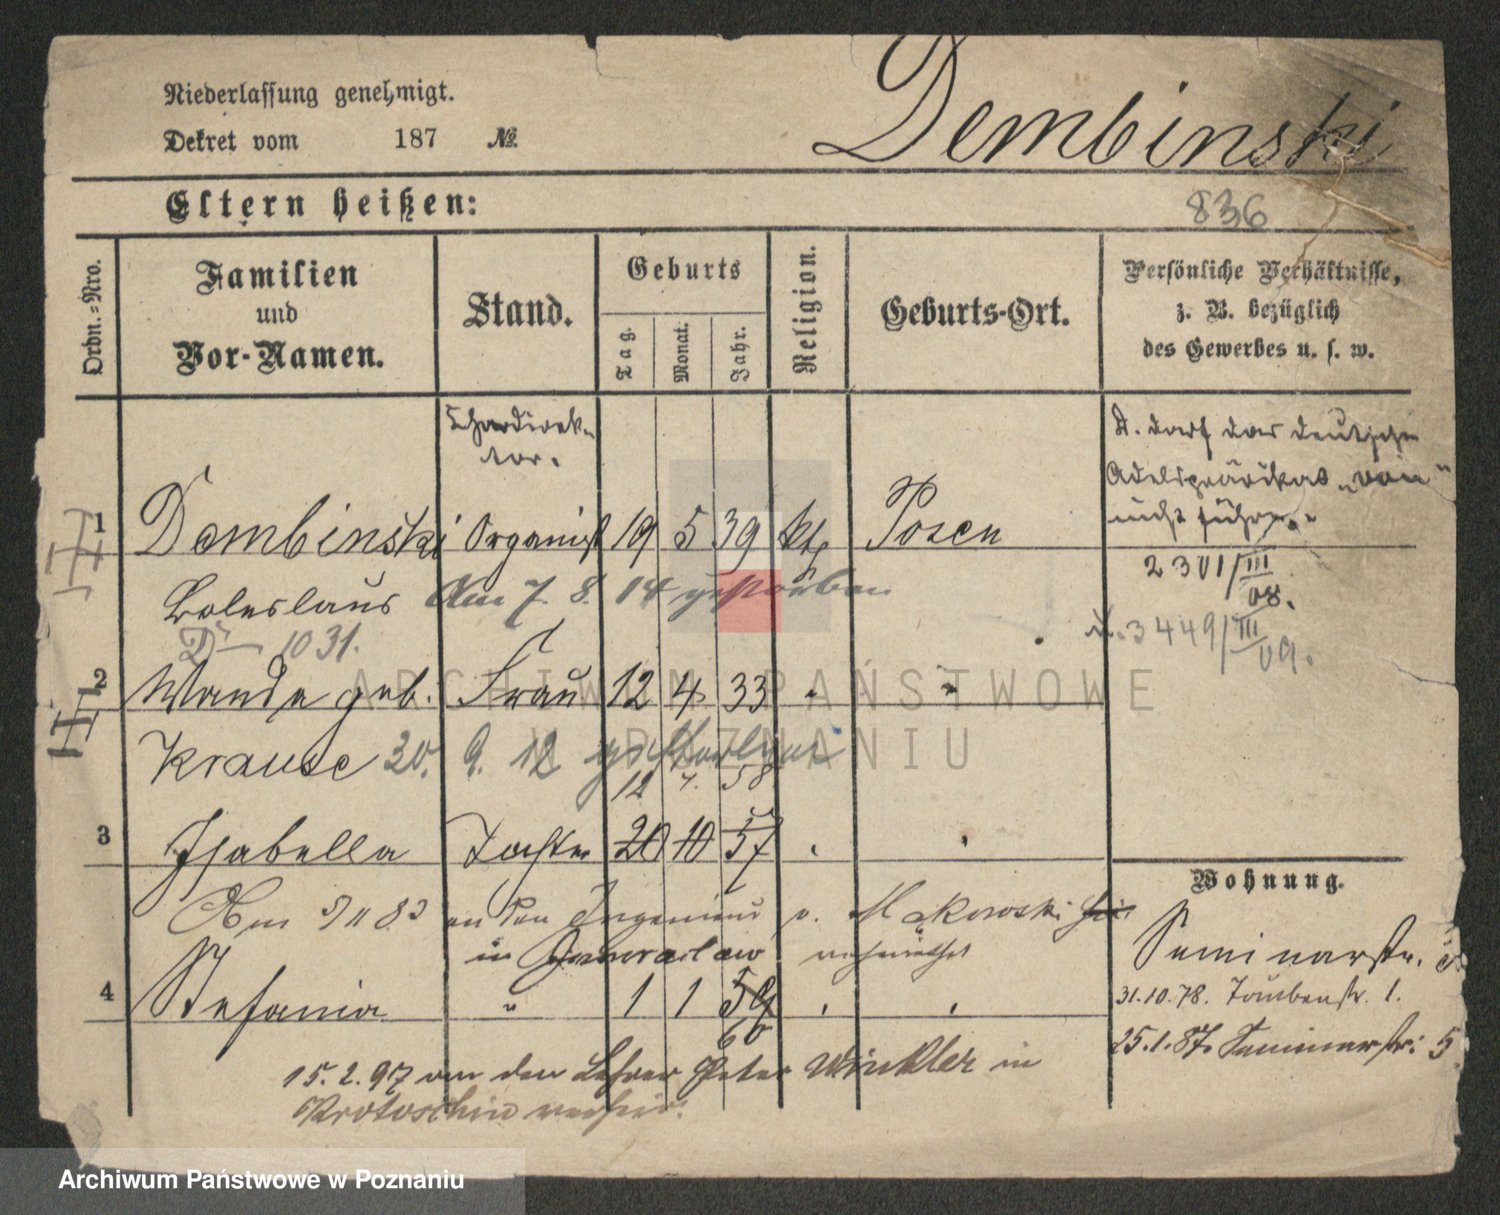 Niederlassung genehmigt.
Dekret vom 187 №
Dembinski
Eltern heißen:
836
Ordn.=Nro.
Familien und Vor-Namen.
Stand.
Geburts
Tag. Monat. Jahr.
Religion.
Geburts-Ort.
Persönliche Verhältnisse,
z. B. bezüglich
des Gewerbes u. s. w.
Chordirek-
tor.
D. darf das deutsche
Adelsprädikat „von“
nicht führen.
1 Dembinski Organist 19 5 39 kth Posen
2301/III
08.
Boleslaus Am 7. 8. 14 gestorben
3449/III
09.
1031.
2 Wanda geb. Frau 12 4 33 " "
Krause 30. 9. 12 gestorben
12 7. 58
3 Isabella Tochter 20 10 57 " "
Wohnung.
Am 5/11 83 an den Ingenieur v. Mąkowski
in Inowraclaw verheirathet
Seminarstr. 5.
4 Stefania " 1 1 59 " "
31.10.78. Taubenstr. 1.
60
25.1.87. Seminarstr. 5
15.2.97 an den Lehrer Peter Winkler in
Krotoschin verheir.
ARCHIWUM PAŃSTWOWE
W POZNANIU
Archiwum Państwowe w Poznaniu